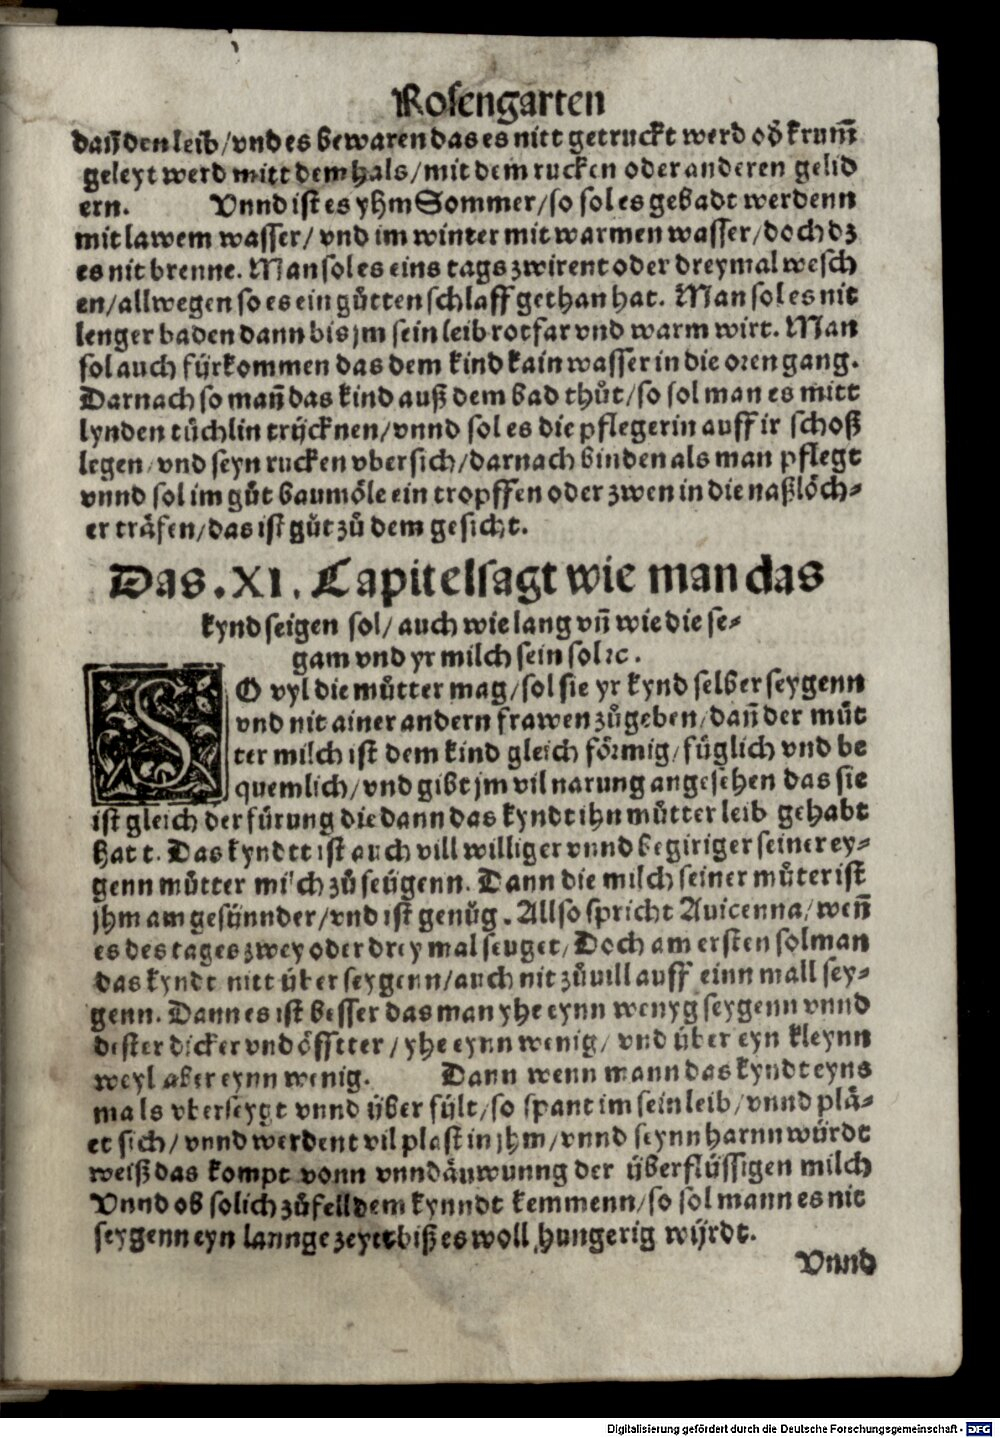 Rosengarten
dañ den leib/vnd es bewaren das es nitt getruckt werd oď krum̃
geleyt werd mitt dem hals/mit dem rucken oder anderen gelid
ern. Vnnd ist es yhm Sommer/so sol es gebadt werdenn
mit lawem wasser/ vnd im winter mit warmen wasser/doch dz
es nit brenne. Man sol es eins tags zwirent oder dreymal wesch
en/allwegen so es ein gůtten schlaff gethan hat. Man sol es nit
lenger baden dann bis jm sein leib rotfar vnd warm wirt. Man
sol auch fürkommen das dem kind kain wasser in die oren gang.
Darnach so mañ das kind auß dem bad thůt/so sol man es mitt
lynden tüchlin trücknen/vnnd sol es die pflegerin auff ir schoß
legen/vnd seyn rucken vbersich/darnach binden als man pflegt
vnnd sol im gůt baumöle ein tropffen oder zwen in die naßlöch⸗
er träfen/das ist gůt zů dem gesicht.
Das .XI. Capitel sagt wie man das
kynd seigen sol/auch wie lang vñ wie die se⸗
gam vnd yr milch sein sol ꝛc.
SO vyl die můtter mag/sol sie yr kynd selber seygenn
vnd nit ainer andern frawen zůgeben/dañ der můt
ter milch ist dem kind gleich förmig/füglich vnd be
quemlich/vnd gibt jm vil narung angesehen das sie
ist gleich der fürung die dann das kyndt ihn můtter leib gehabt
hatt. Das kyndtt ist auch vill williger vnnd begiriger seiner ey⸗
genn můtter milch zů seügenn. Dann die milch seiner můter ist
jhm am gesünnder/vnd ist genůg. Allso spricht Auicenna/weñ
es des tages zwey oder drey mal seuget/Doch am ersten sol man
das kyndt nitt über seygenn/auch nit zůuill auff einn mall sey⸗
genn. Dann es ist besser das man yhe eynn wenyg seygenn vnnd
dester dicker vnd öffter/yhe eynn wenig/ vnd über eyn kleynn
weyl aber eynn wenig. Dann wenn mann das kyndt eyns
mals vberseygt vnnd über fült/so spant im sein leib/vnnd plä⸗
et sich/vnnd werdent vil plast in jhm/vnnd seynn harnn würdt
weiß das kompt vonn vnndäuwunng der überflüssigen milch
Vnnd ob solich zůfell dem kynndt kemmenn/so sol mann es nit
seygenn eyn lannge zeytt biß es woll hungerig würdt.
Vnnd
Digitalisierung gefördert durch die Deutsche Forschungsgemeinschaft - DFG